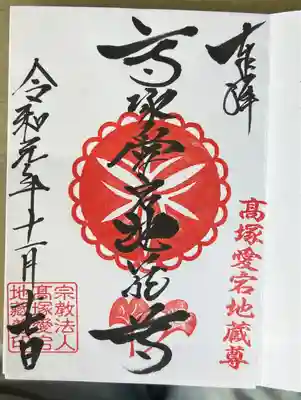 奉拝
高塚愛宕地蔵尊
高塚愛宕地蔵尊
令和元年十一月
宗教法人
高塚愛宕
地蔵尊印